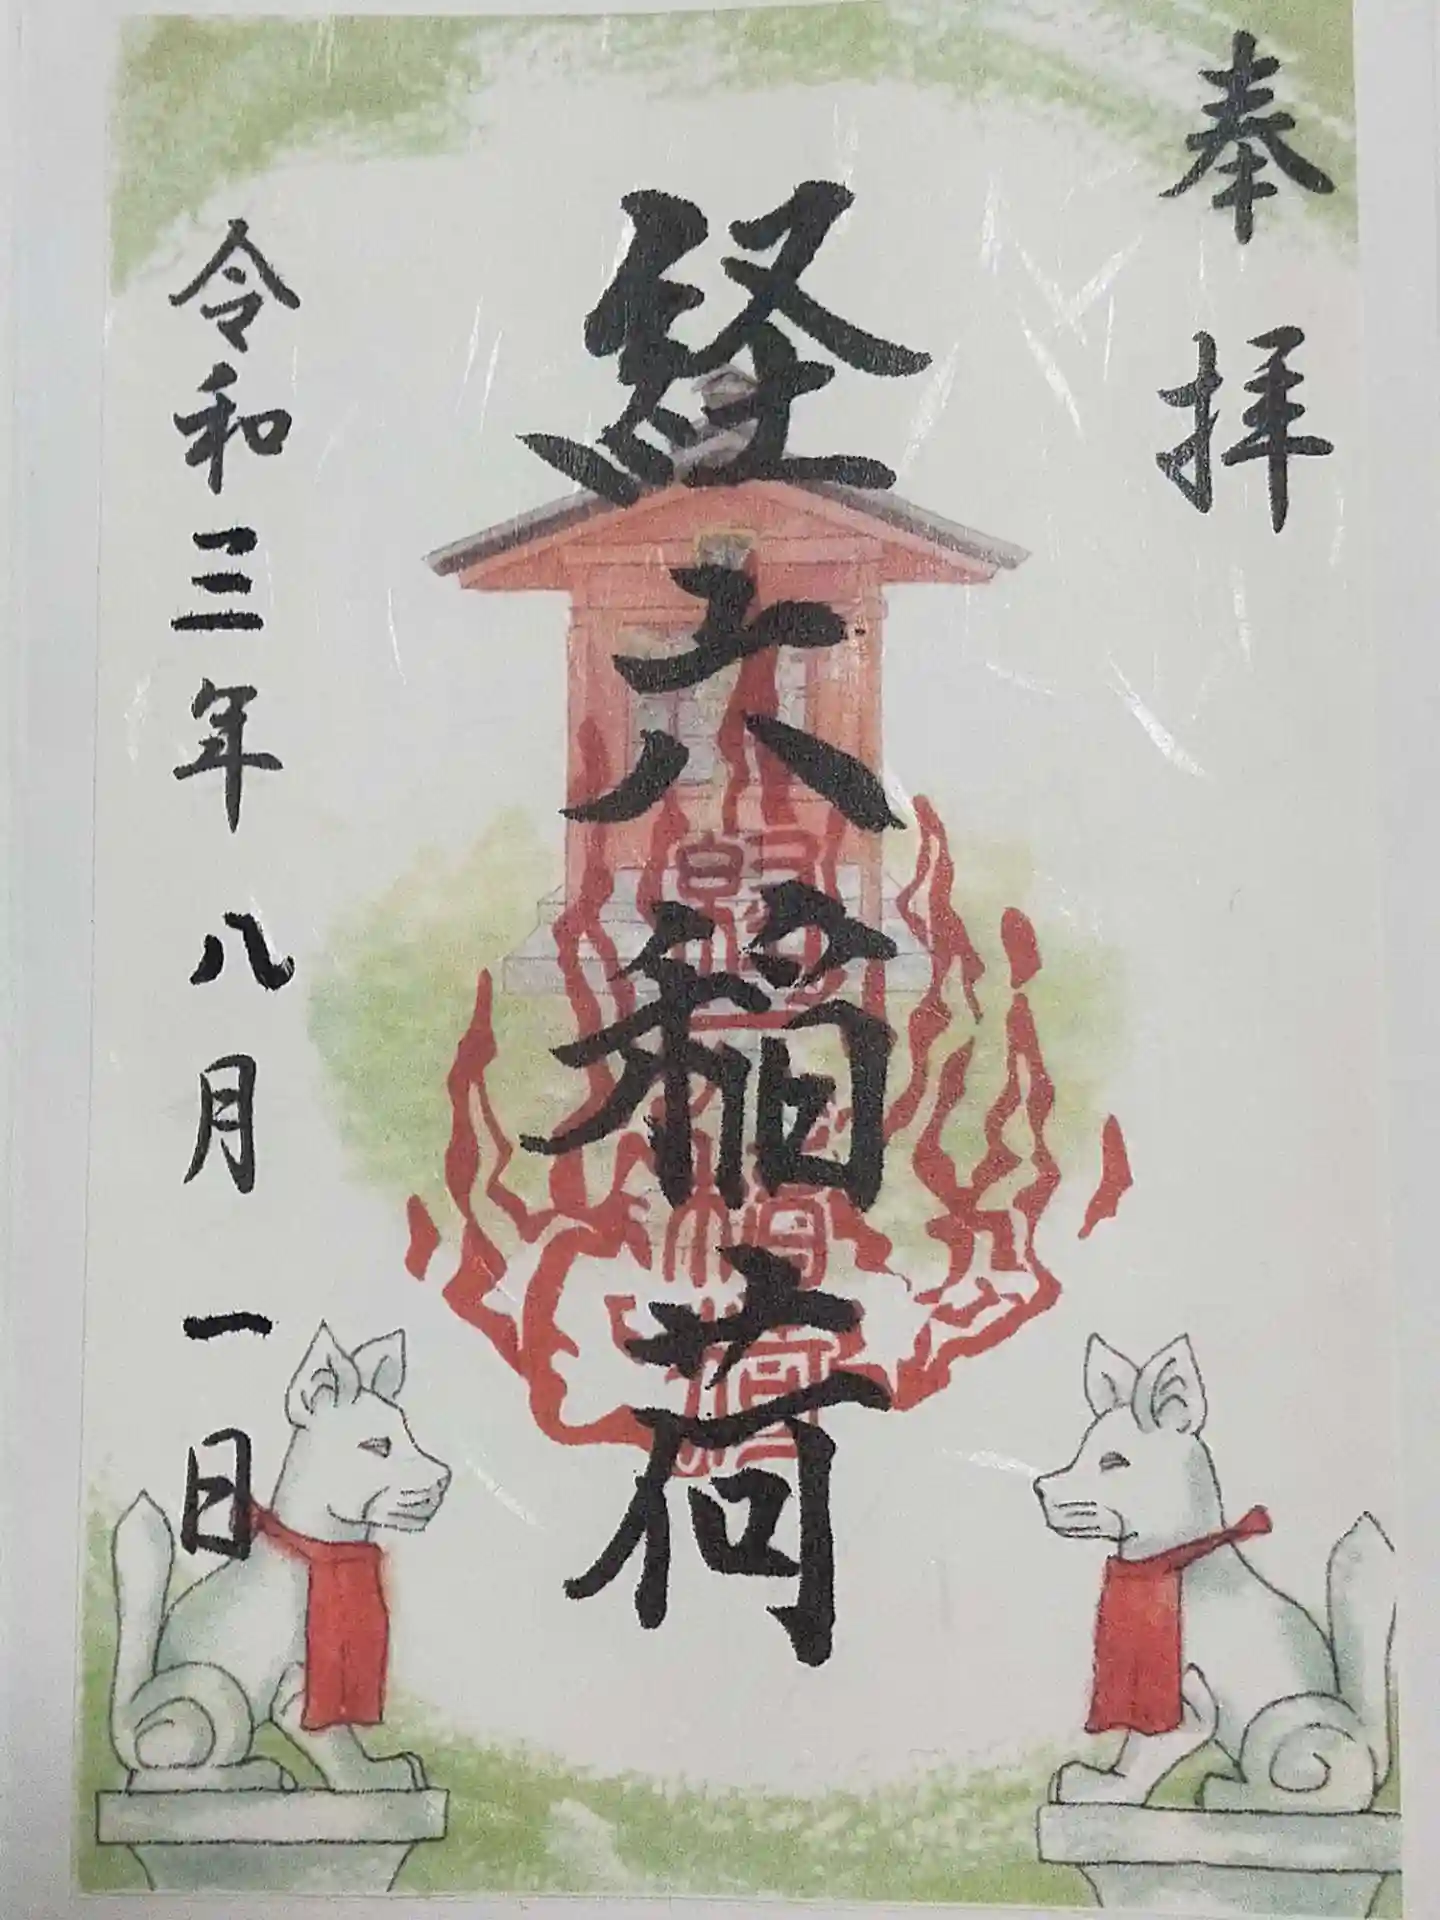 奉拝
経六稲荷
令和三年八月一日